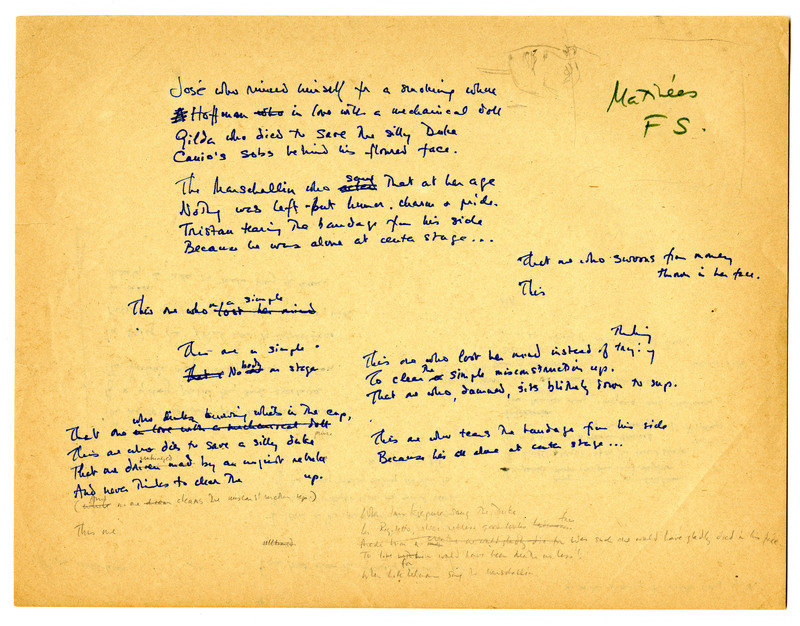 Matinées
F S.
José who ruined himself for a smoking whore
Hoffman who in love with a mechanical doll
Gilda who died to save the silly Duke
Canio's sobs behind his floured face.
The Marschallin who acted said that at her age
Nothing was left but humor, charm & pride.
Tristan tearing the bandage from his side
Because he was alone at center stage...
That one who swoons from money
thrown in her face.
This
This one who lost her mind on a simple
This one a simple
That Nobody on stage
This one who lost her mind instead of trying thinking
To clear a the simple misconstruction up.
That one who, damned, sits blithely down to sup.
That one in love with a mechanical doll who drinks knowing what's in the cup,
This one who dies to save a silly duke
That one driven mad by an unjust rebuke
And never thinks to clear the up.
This one who tears the bandage from his side
Because he's alone at center stage...
(no one clears the up.)
This one
When sang the Duke
In Rigoletto
one would have gladly died in his place
To live would have been
When sang the Marschallin